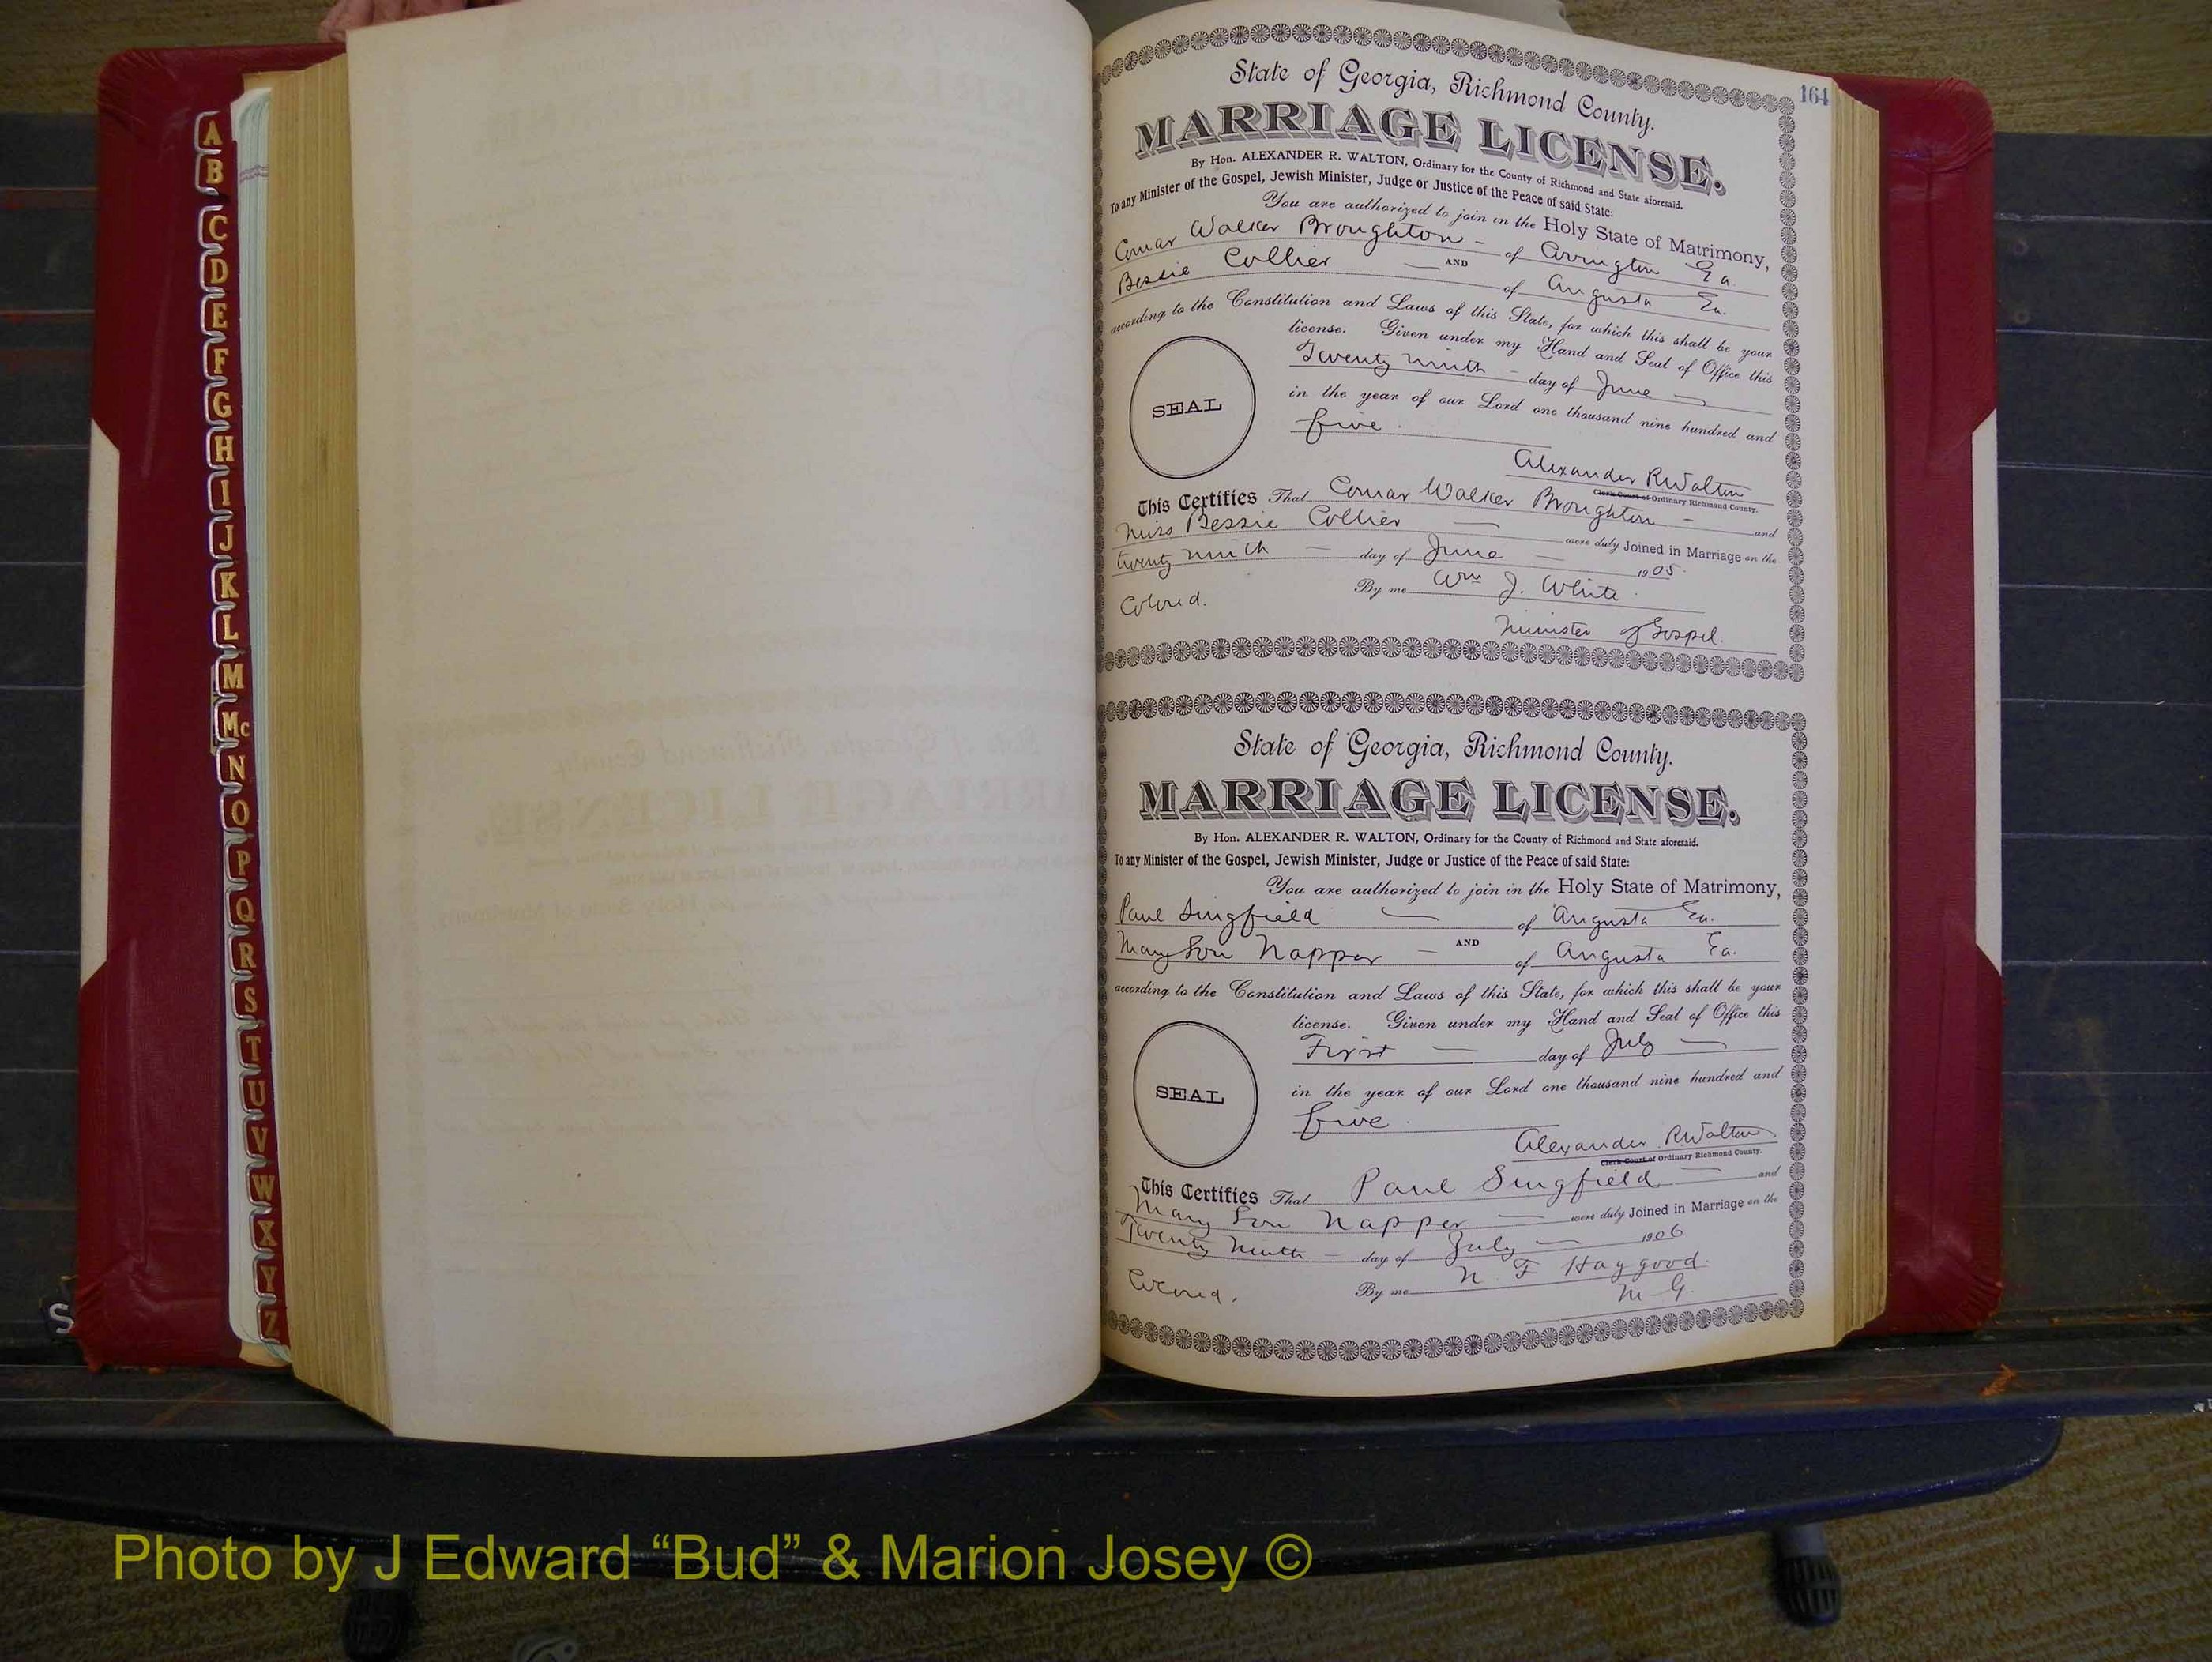 A
B
C
D
E
F
G
H
I
J
K
L
M
Mc
N
O
P
Q
R
S
T
U
V
W
X
Y
Z
S
164
State of Georgia, Richmond County.
MARRIAGE LICENSE.
By Hon. ALEXANDER R. WALTON, Ordinary for the County of Richmond and State aforesaid.
To any Minister of the Gospel, Jewish Minister, Judge or Justice of the Peace of said State:
You are authorized to join in the Holy State of Matrimony,
Walker Broughton of Ga.
AND
Bessie Collier of Augusta Ga.
according to the Constitution and Laws of this State, for which this shall be your
license. Given under my Hand and Seal of Office this
Twenty ninth day of June
in the year of our Lord one thousand nine hundred and
five.
SEAL
Alexander R Walton
Clerk Court of Ordinary Richmond County.
This Certifies That Walker Broughton and
Miss Bessie Collier were duly Joined in Marriage on the
twenty ninth day of June 1905.
By me Wm J. White
Colored. Minister of Gospel.
State of Georgia, Richmond County.
MARRIAGE LICENSE.
By Hon. ALEXANDER R. WALTON, Ordinary for the County of Richmond and State aforesaid.
To any Minister of the Gospel, Jewish Minister, Judge or Justice of the Peace of said State:
You are authorized to join in the Holy State of Matrimony,
Paul Singfield of Augusta Ga.
AND
Mary Lou Napper of Augusta Ga.
according to the Constitution and Laws of this State, for which this shall be your
license. Given under my Hand and Seal of Office this
First day of July
in the year of our Lord one thousand nine hundred and
five.
SEAL
Alexander R Walton
Clerk Court of Ordinary Richmond County.
This Certifies That Paul Singfield and
Mary Lou Napper were duly Joined in Marriage on the
Twenty Ninth day of July 1906
By me N. F Haygood
Colored. M G.
Photo by J Edward “Bud” & Marion Josey ©